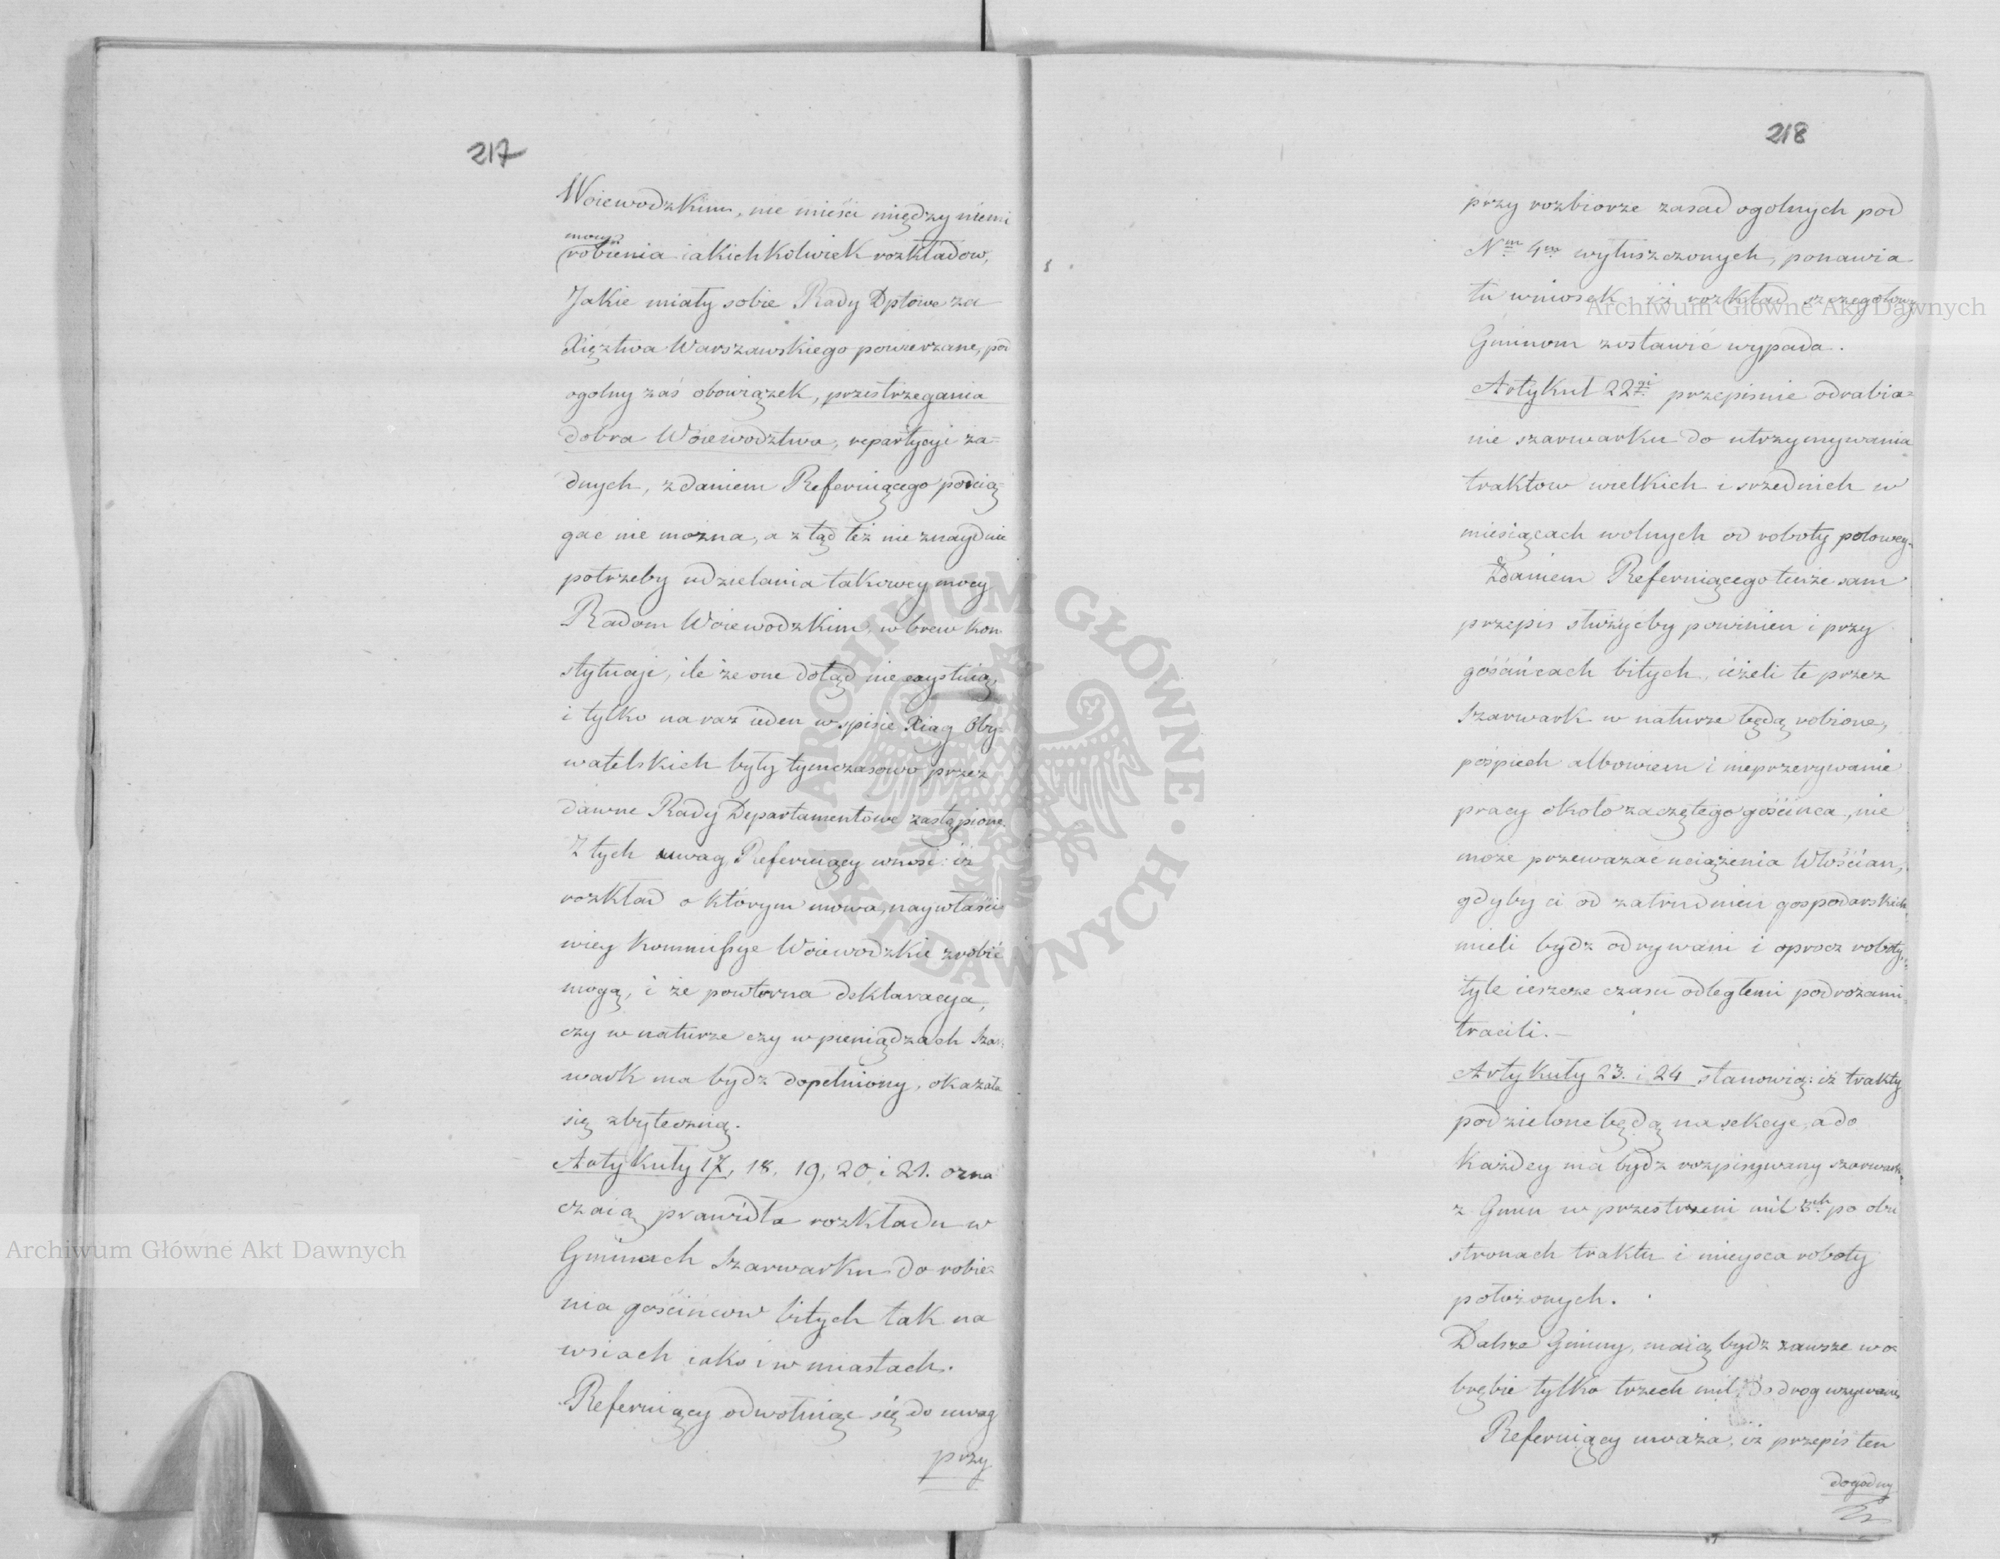 217
Woiewodzkim, nie mieści między niemi
mocy
robienia iakichkolwiek rozkładow,
Jakie miały sobie Rady Dptowe za
Xięztwa Warszawskiego powierzane, pod
ogolny zaś obowiązek, przestrzegania
dobra Woiewodztwa, repartycyi ża-
dnych, zdaniem Referuiącego podcią-
gać nie można, a z tąd też nie znayduie
potrzeby udzielania takowey mocy
Radom Woiewodzkim, w brew Kon
stytucyi, ile że one dotąd nie exystuią
i tylko na raz ieden w spisie Xiąg Oby-
watelskich były tymczasowo przez
dawne Rady Departamentowe zastąpione.
Z tych uwag Referuiący wnosi: iż
rozkład o którym mowa, naywłaści
wiey Kommissye Woiewodzkie zrobić
mogą, i że powtorna deklaracya,
czy w naturze czy w pieniądzach szar-
wark ma bydz dopełniony, okazała
się zbyteczną.
Artykuły 17, 18, 19, 20 i 21. ozna
czaią prawidła rozkładu w
Gminach szarwarku do robie-
nia gościńcow bitych tak na
wsiach iako i w miastach.
Referuiący odwołuiąc się do uwag
przy
218
przy rozbiorze zasad ogolnych pod
Nm 4m wyłuszczonych, ponawia
tu wniosek iż rozkład szczegołowy
Gminom zostawić wypada.
Artykuł 22gi przepisuie odrabia-
nie szarwarku do utrzymywania
traktow wielkich i srzednich w
miesiącach wolnych od roboty polowey.
Zdaniem Referuiącego tenże sam
przepis służyćby powinien i przy
gościńcach bitych, ieżeli te przez
szarwark w naturze będą robione,
pośpiech albowiem i nieprzerywanie
pracy około zaczętego gościńca, nie
może przeważać uciążenia Włościan,
gdyby ci od zatrudnień gospodarskich
mieli bydz odrywani i oprocz roboty,
tyle ieszcze czasu odległemi podrożami
tracili.
Artykuły 23. i 24 stanowią: iż trakty
podzielone będą na sekcye, a do
każdey ma bydz rozpisywany szarwark
z Gmin w przestrzeni mil 3ch po obu
stronach traktu i mieysca roboty
położonych.
Dalsze Gminy, maią bydz zawsze w o-
brębie tylko trzech mil do drog używane,
Referuiący uważa, iż przepis ten
dogodny
Archiwum Główne Akt Dawnych
Archiwum Główne Akt Dawnych
ARCHIWUM GŁÓWNE · AKT DAWNYCH ·